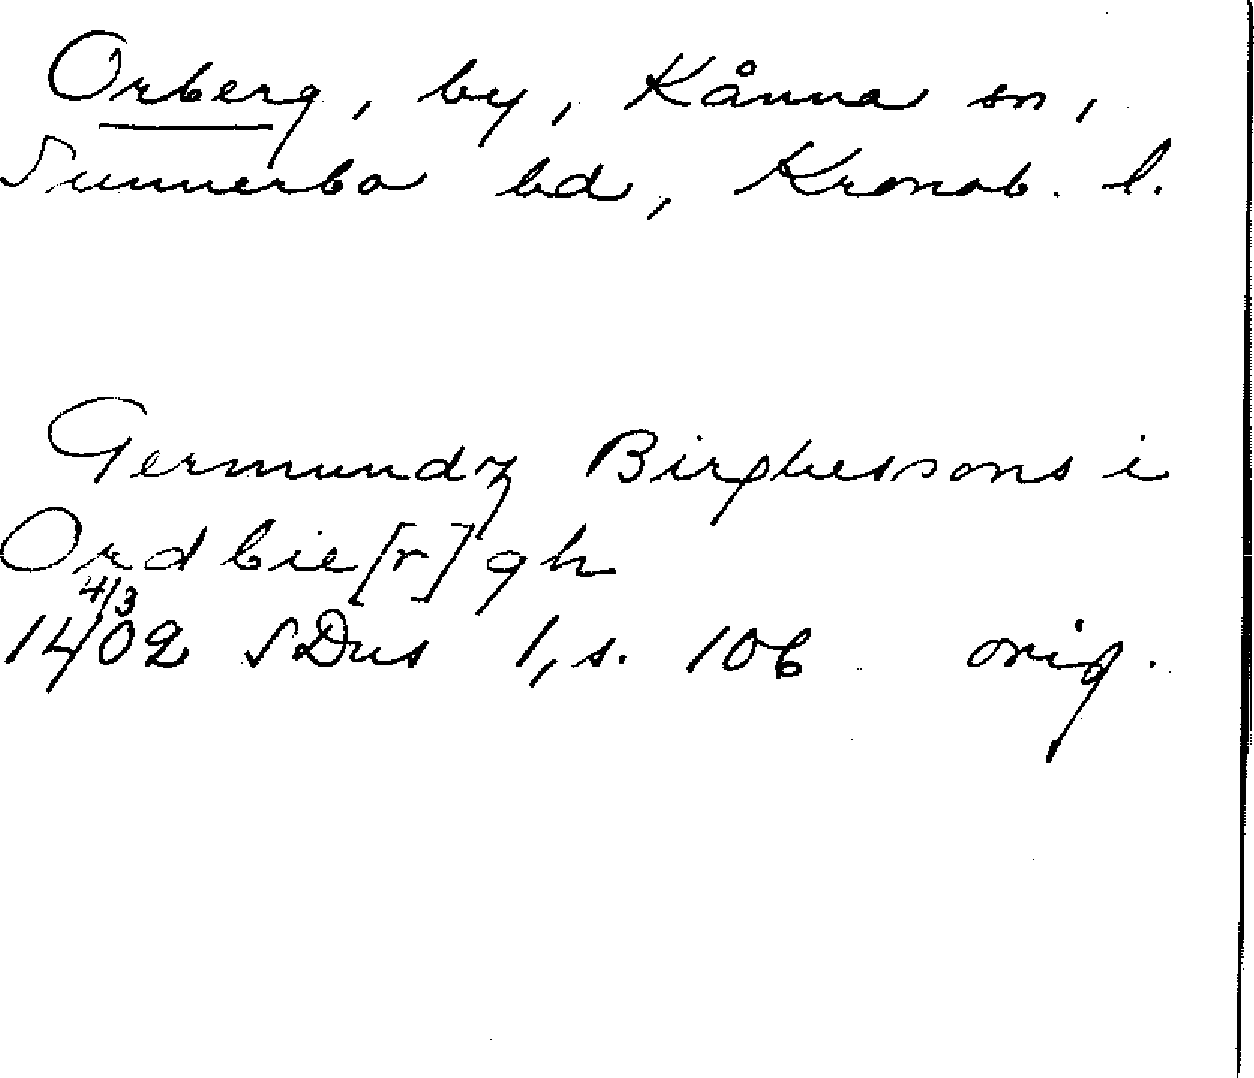 Orberg, by, Kånna sn,
Sunnerbo hd, Kronob. l.
Germundz Birghessons i
Ordbie[r]gh
4/3
1402 SDns 1, s. 106 orig.